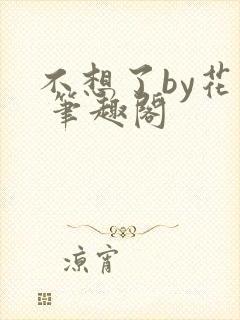 不想了by花
筆趣閣
凉宵